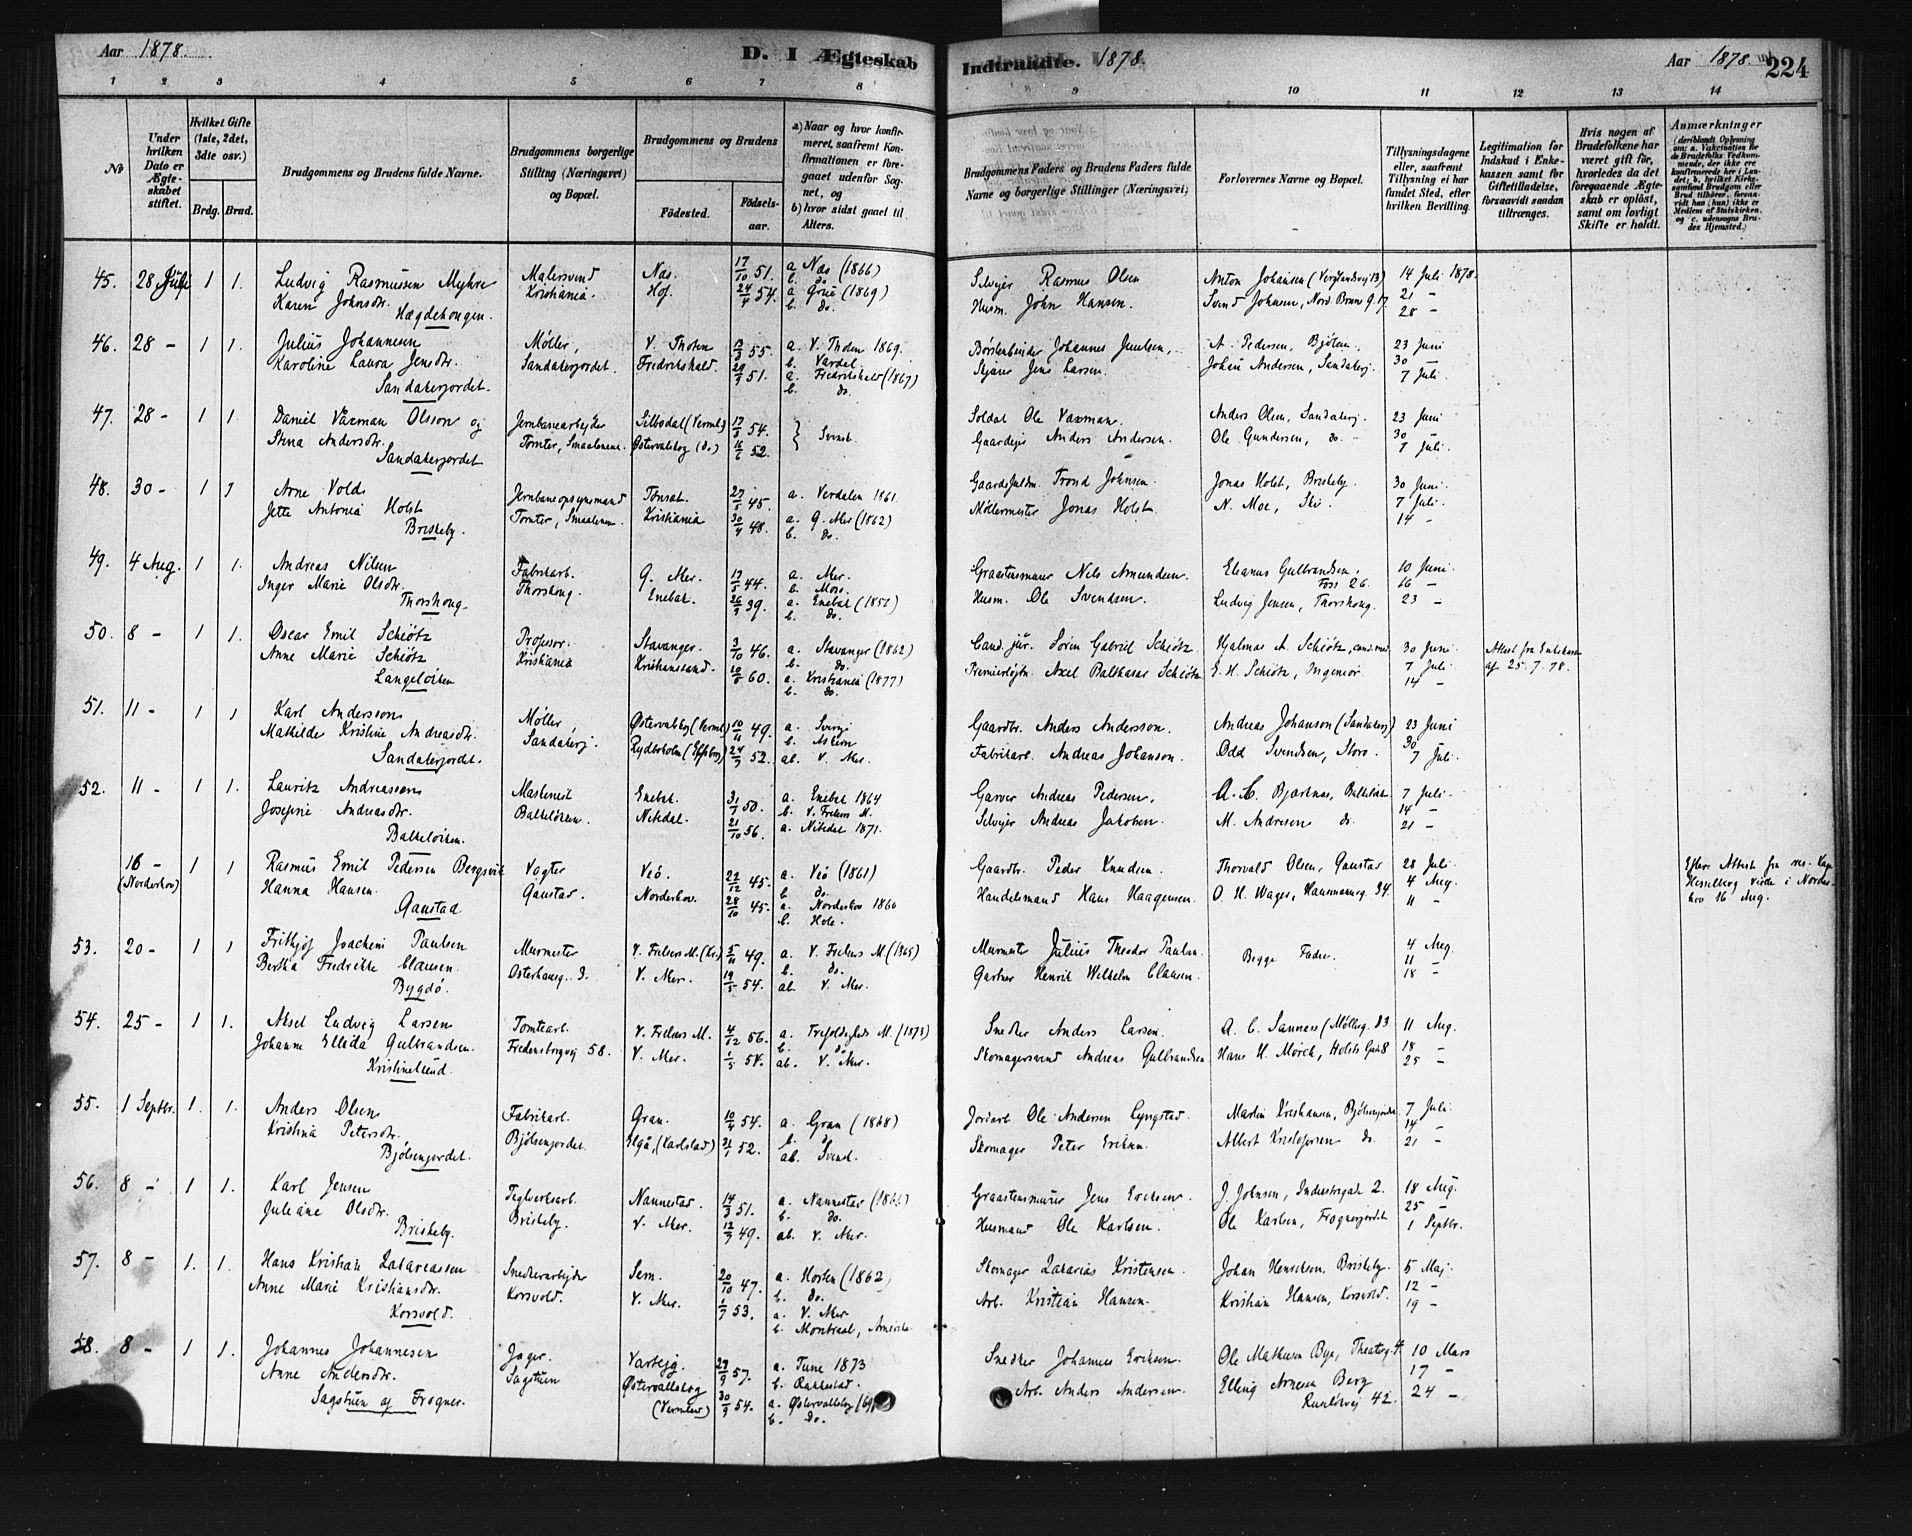 Aar 1878.
D. I Ægteskab
Indtraadte. 1878.
Aar 1878.
224
1 2 3 4 5 6 7 8 9 10 11 12 13 14
No
Under hvilken Dato er Ægteskabet stiftet.
Hvilket Gifte (1ste, 2det, 3die osv.)
Brdg. Brud.
Brudgommens og Brudens fulde Navne.
Brudgommens borgerlige Stilling (Næringsvei) og Bopæl.
Brudgommens og Brudens
Fødested.
Fødsels-aar.
a) Naar og hvor konfirmeret, saafremt Konfirmationen er foregaaet udenfor Sognet, og
b) hvor sidst gaaet til Alters.
Brudgommens Faders og Brudens Faders fulde Navne og borgerlige Stillinger (Næringsvei)
Forlovernes Navne og Bopæl.
Tillysningsdagene eller, saafremt Tillysning ei har fundet Sted, efter hvilken Bevilling.
Legitimation for Indskud i Enkekassen samt for Giftetilladelse, forsaavidt saadan tiltrænges.
Hvis nogen af Brudefolkene har været gift før, hvorledes da det foregaaende Ægteskab er opløst, samt om lovligt Skifte er holdt.
Anmærkninger
45. 28 Juli 1 1. Ludvig Rasmussen Myhre Malersvend Næs. 17/10 51. a Næs (1866) Selvejer Rasmus Olsen Anton Johansen 14 Juli 1878
Karen Johnsdr. Kristiania. Hof. 24/4 54. b. do. a Grue (1869) Husm. John Hansen. Svend Johnsen, 21 -
Hægdehougen. b. do. 28 -
46. 28 - 1 1. Julius Johannesen Møller, V. Thoten 13/3 55. a. V. Thoten 1869. Børstenbinder Johannes A. Pedersen, Bjølsen. 23 Juni
Karoline Laura Jensdr. Sandakerjordet. Fredrikshald. 51. b. Vardal. a. Fredrikshald (1867) Skjærer Jens Larsen. Johan Andersen, Sandakerj. 30 -
Sandakerjordet. b. do. 7 Juli.
47. 28 - 1 1. Daniel Vaxman Olsson og Jernbanearbejder Silbodal (Verml.) 54. Svensk. Soldat Ole Vaxman. Anders Olsen, Sandakerj. 23 Juni
Stina Andersdr. Tomter, Smaalenene. Østervalskog (do) 52. Gaardejer Anders Andersen. Ole Gundersen, do. 30 -
Sandakerjordet 7 Juli.
48. 30 - 1 1 Arne Vold Jernbaneopsynsmand Tønset. 27/5 45. a. Verdalen 1861. Trond Johnsen. Jonas Holst, Briskeby. 30 Juni.
Jette Antonia Holst Tomter, Smaalenene. Kristiania 48. a. G. Aker (1862) Møllermester Jonas Holst. N. Moe, Ski. 7 Juli.
Briskeby. b. do. 14 -
49. 4 Aug. 1 1. Andreas Nilsen Fabrikarb. G. Aker. 44. a. Aker. Graastensmurer Nils Amundsen. Elianus Gulbrandsen, 10 Juni.
Inger Marie Olsdr. Thorshoug. Enebak. 39. b. Moss. a. Enebak Husm. Ole Svendsen. Foss 26. 16 -
Thorshoug. b. do. Ludvig Jensen, Thorshoug. 23 -
50. 8 - 1 1. Oscar Emil Schiøtz Professor. Stavanger. 3/10 46. a. Stavanger (1862) Cand. jur. Søren Gabriel Schiøtz Hjalmar A. Schiøtz, cand. med. 30 Juni. Attest fra Enkekassen
Anne Marie Schiøtz Kristiania Kristianssand. 60. b. do. a. Kristiania (1877) Premierløjtn. Axel Balthasar Schiøtz E. H. Schiøtz, Ingeniør. 7 Juli af 25.7.78.
Langeløiken b. do. 14 -
51. 11 - 1 1 Karl Andersson Møller, Østervalskog (Verml) 10/11 49. a. Sverig Gaardbr. Anders Andersson. Andreas Johanson (Sandakerj) 23 Juni
Mathilde Kristine Andreasdr. Sandakerj. Rydboholm 52. b. Askim ab. V. Aker. Fabrikarb. Andreas Johanson. Odd Svendsen, Storo. 30
Sandakerjordet. 7 Juli.
52. 11 - 1 1. Lauritz Andreassen Enebak. 50. a. Enebak 1864 Garver Andreas Pedersen, 7 Juli.
Josefine Andreasdr. Bakkeløkken. Nitedal. 21/10 56. b. V. Frelsers M. a. Nitedal 1871. Selvejer Andreas Jakobsen. M. Andresen do. 14 -
Bakkeløkken. 21 -
16 - (Norderhov) 1 1 Rasmus Emil Pedersen Bergsvik Vogter Veø. 22/12 45. a. Veø (1861) Gaardbr. Peder Knudsen. Thorvald Olsen, Gaustad 28 Juli. Efter Attest fra res. Kap.
Hanna Hansen. Gaustad. Norderhov. 28/10 45. b. do. a. Norderhov 1860 Handelsmand Hans Haagensen. O. H. Wager, Hausmannsg. 34. 4 Aug. Hesselberg viede i Norder-
Gaustad b. Hole. 11 - hov 16 Aug.
53. 20 - 1 1 Frithjof Joachim Paulsen Murmester V. Frelsers M. 49. a. V. Frelsers M. (1865) Murmester Julius Theodor Paulsen. Begge Fædre. 4 Aug.
Bertha Fredrikke Clausen. Osterhausg. 3. V. Aker. 54. b. do. ab. V. Aker. Gartner Henrik Wilhelm Clausen. 11 -
Bygdø. 18 -
54. 25 - 1 1. Aksel Ludvig Larsen Tomtearb. V. Frelsers M. 4/12 56. a. Trefoldigheds M. (1873) Snedker Anders Larsen. A. C. Sanness (Møllerg. 83 11 Aug.
Johanne Ellida Gulbrandsen. Fredensborgvej 58. V. Aker. 1/5 54. b. do ab. V. Aker. Skomagersvend Andreas Gulbrandsen Hans H. Mørch, Holsts Gade 8 18 -
Kristinelund. 25 -
55. 1 Septbr. 1. 1. Anders Olsen Fabrikarb. Gran. 54. a. Gran (1868) Jordarb. Ole Andersen Lyngstad. Martin Kristiansen, Bjølsenjordet 7 Juli.
Kristina Petersdr. Bjølsenjordet. Elgå, (Karlstad) 52. b. do ab. Svensk. Skomager Peter Eriksen. Albert Kristofersen do. 14 -
Bjølsenjordet. 21 -
56. 8 - 1 1. Karl Jensen Teglverksarb. Nannestad. 14/3 51. a. Nannestad (1866) Graastensmurer Jens Eriksen. J. Johnsen, Industrigade 2. 18 Aug.
Juliane Olsdr. Briskeby. V. Aker. 49. b. do. ab. V. Aker. Husmand Ole Karlsen. Ole Karlsen, Frognerjordet 25 -
Briskeby. 1 Septbr.
57. 8 - 1. 1. Hans Kristian Zakariassen Snedkerarbejder Sem. 20/10 47. a. Horten (1862) Skomager Zakarias Kristensen. Johan Henriksen, Briskeby. 5 Maj.
Anne Marie Kristiansdr. Korsvold. V. Aker. 53. b. do. a. V. Aker Arb. Kristian Hansen. Kristian Hansen, Korsvold. 12 -
Korsvold. b. Montreal, Amerika 19 -
58. 8 - 1 1. Johannes Johannesen Jæger. Varteig. 57. a. Tune 1873 Snedker Johannes Eriksen. Ole Mathisen Bye, Theaterg. 10 Mars
Anne Andersdr. Sagstuen Østervallskog 30/9 54. b. Rakkestad. a. Østervallskog Arb. Anders Andersen. Elling Arnesen Berg 17 -
Sagstuen af Frogner. (Vermland) b. Do. 42. 24 -